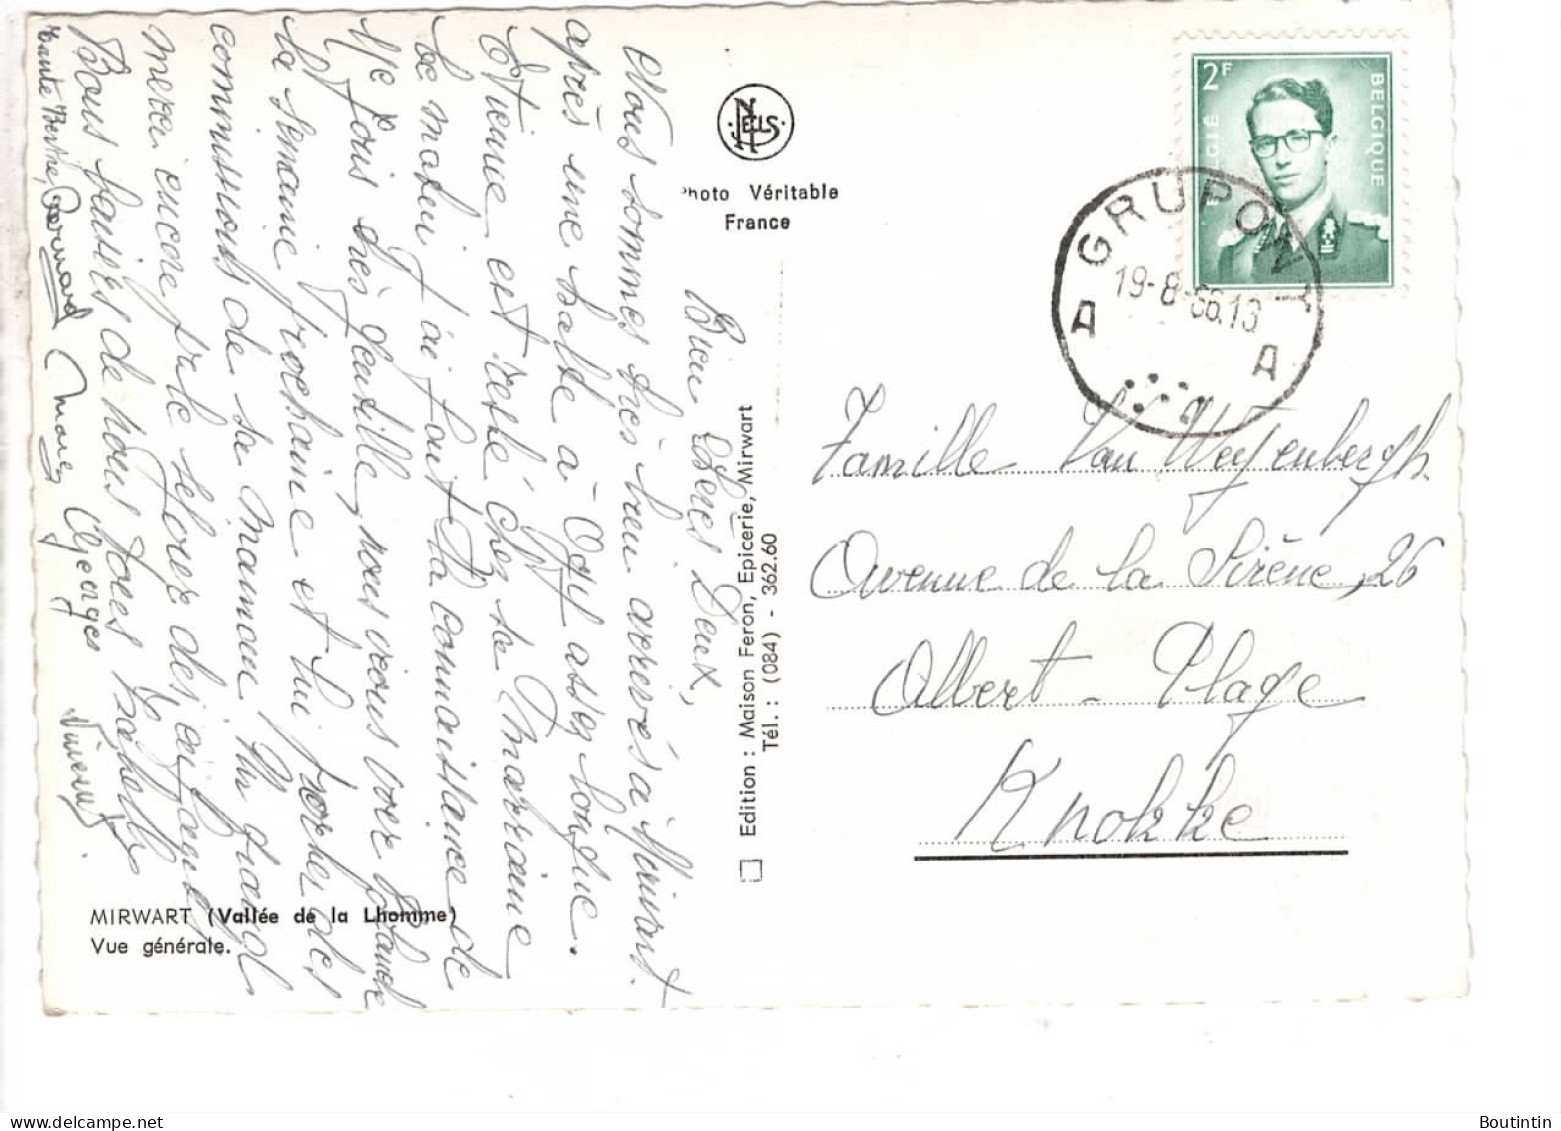 Bien Chers Deux,
Nous sommes très bien arrivés à Mirwart
après une halte à Ogy assez longue.
Etienne est resté chez sa Marraine
ce matin j'ai fait la connaissance de
Mme fois très gentille, nous irons voir Blanche
la semaine prochaine et lui porter des
commissions de sa maman. Un grand
merci encore pour le séjour des enfants
Bons baisers de nous tous
Tante Berthe, Germaine Georges
NELS
Photo Véritable
France
Edition : Maison Feron, Epicerie, Mirwart
Tél. : (084) - 362.60
MIRWART (Vallée de la Lhomme)
Vue générale.
2F
BELGIQUE
BELGIË
GRUPONT
19-8-66.13
A A
Famille Van Weyenbergh.
Avenue de la Sirène, 26
Albert - Plage
Knokke
Boutintin